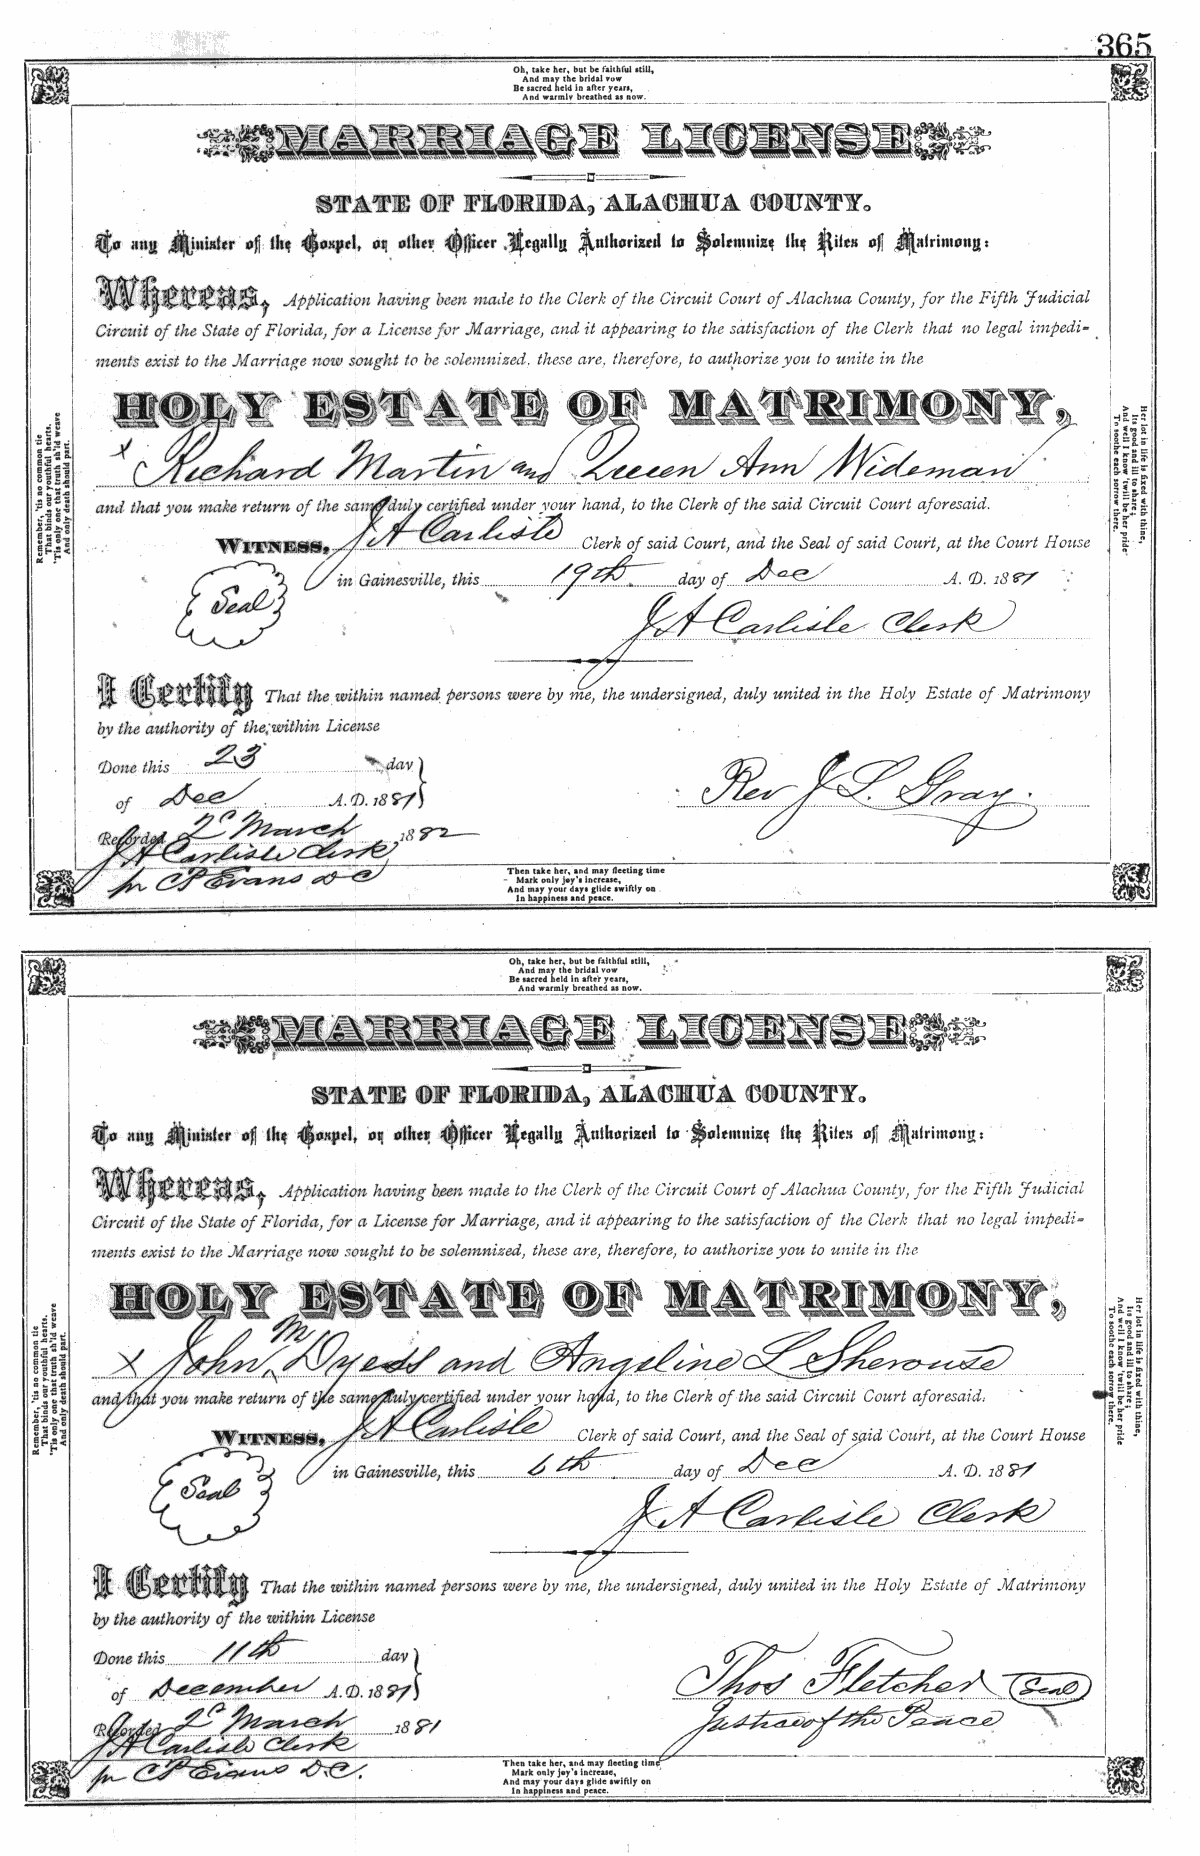 365
Oh, take her, but be faithful still,
And may the bridal vow
Be sacred held in after years,
And warmly breathed as now.
MARRIAGE LICENSE
STATE OF FLORIDA, ALACHUA COUNTY.
To any Minister of the Gospel, or other Officer Legally Authorized to Solemnize the Rites of Matrimony:
Whereas, Application having been made to the Clerk of the Circuit Court of Alachua County, for the Fifth Judicial
Circuit of the State of Florida, for a License for Marriage, and it appearing to the satisfaction of the Clerk that no legal impedi-
ments exist to the Marriage now sought to be solemnized, these are, therefore, to authorize you to unite in the
HOLY ESTATE OF MATRIMONY,
x Richard Martin and Queen Ann Wideman
and that you make return of the same duly certified under your hand, to the Clerk of the said Circuit Court aforesaid.
WITNESS, J A Carlisle Clerk of said Court, and the Seal of said Court, at the Court House
Seal in Gainesville, this 19th day of Dec A. D. 1881
J A Carlisle Clerk
I Certify That the within named persons were by me, the undersigned, duly united in the Holy Estate of Matrimony
by the authority of the within License
Done this 23 day
of Dec A.D. 1881
Rev J L Gray.
Recorded 2d March 1882
J A Carlisle Clerk
pr C P Evans D C
Remember, 'tis no common tie
That binds our youthful hearts.
'Tis only one that truth sh'ld weave
And only death should part.
Her lot in life is fixed with thine,
Its good and ill to share;
And well I know 'twill be her pride
To soothe each sorrow there.
Then take her, and may fleeting time
Mark only joy's increase,
And may your days glide swiftly on
In happiness and peace.
Oh, take her, but be faithful still,
And may the bridal vow
Be sacred held in after years,
And warmly breathed as now.
MARRIAGE LICENSE
STATE OF FLORIDA, ALACHUA COUNTY.
To any Minister of the Gospel, or other Officer Legally Authorized to Solemnize the Rites of Matrimony:
Whereas, Application having been made to the Clerk of the Circuit Court of Alachua County, for the Fifth Judicial
Circuit of the State of Florida, for a License for Marriage, and it appearing to the satisfaction of the Clerk that no legal impedi-
ments exist to the Marriage now sought to be solemnized, these are, therefore, to authorize you to unite in the
HOLY ESTATE OF MATRIMONY,
x John M Dyess and Angeline L Sherouse
and that you make return of the same duly certified under your hand, to the Clerk of the said Circuit Court aforesaid.
WITNESS, J A Carlisle Clerk of said Court, and the Seal of said Court, at the Court House
Seal in Gainesville, this 6th day of Dec A. D. 1881
J A Carlisle Clerk
I Certify That the within named persons were by me, the undersigned, duly united in the Holy Estate of Matrimony
by the authority of the within License
Done this 11th day
of December A.D. 1881
Thos Fletcher Seal
Justice of the Peace
Recorded 2d March 1881
J A Carlisle Clerk
pr C P Evans D.C.
Remember, 'tis no common tie
That binds our youthful hearts.
'Tis only one that truth sh'ld weave
And only death should part.
Her lot in life is fixed with thine,
Its good and ill to share;
And well I know 'twill be her pride
To soothe each sorrow there.
Then take her, and may fleeting time
Mark only joy's increase,
And may your days glide swiftly on
In happiness and peace.